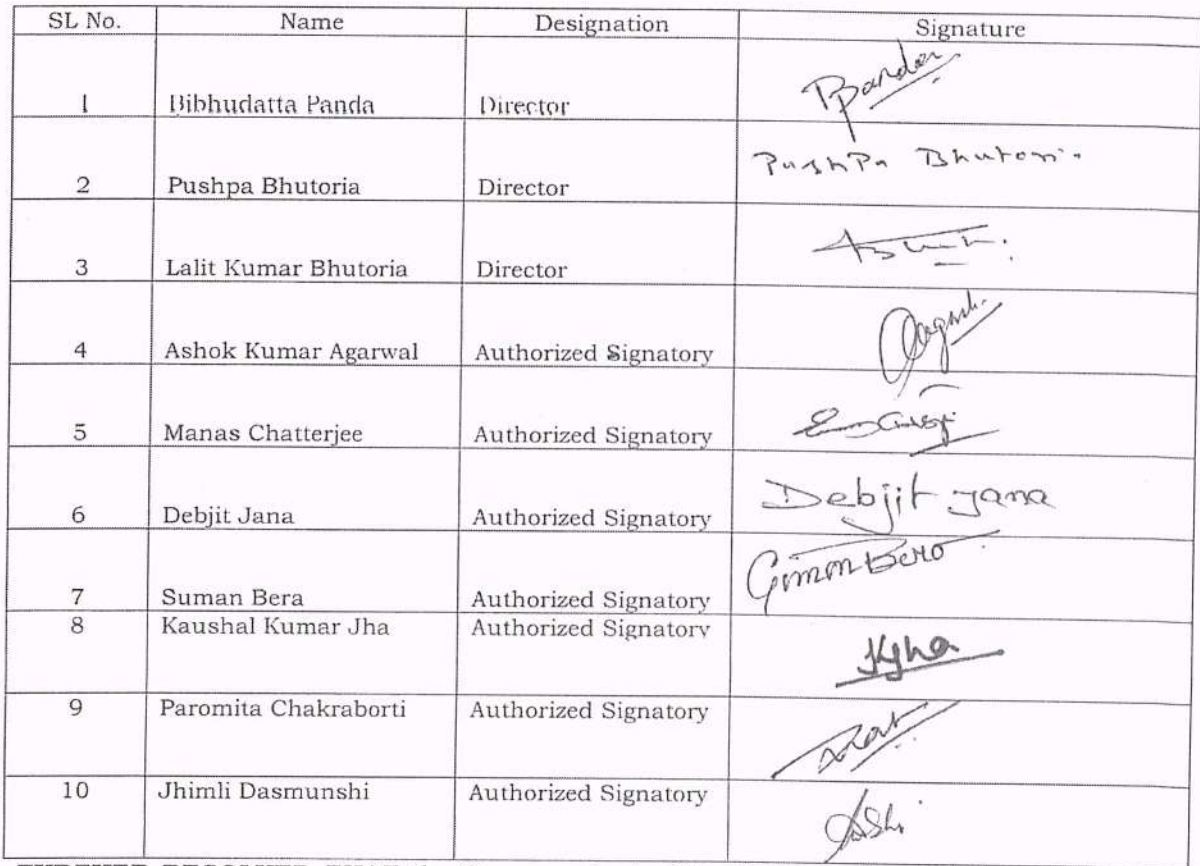 SL No. Name Designation Signature
1 Bibhudatta Panda Director BPanda
2 Pushpa Bhutoria Director PushPa Bhutoria
3 Lalit Kumar Bhutoria Director
4 Ashok Kumar Agarwal Authorized Signatory
5 Manas Chatterjee Authorized Signatory
6 Debjit Jana Authorized Signatory Debjit Jana
7 Suman Bera Authorized Signatory Suman Bera
8 Kaushal Kumar Jha Authorized Signatory KJha
9 Paromita Chakraborti Authorized Signatory
10 Jhimli Dasmunshi Authorized Signatory